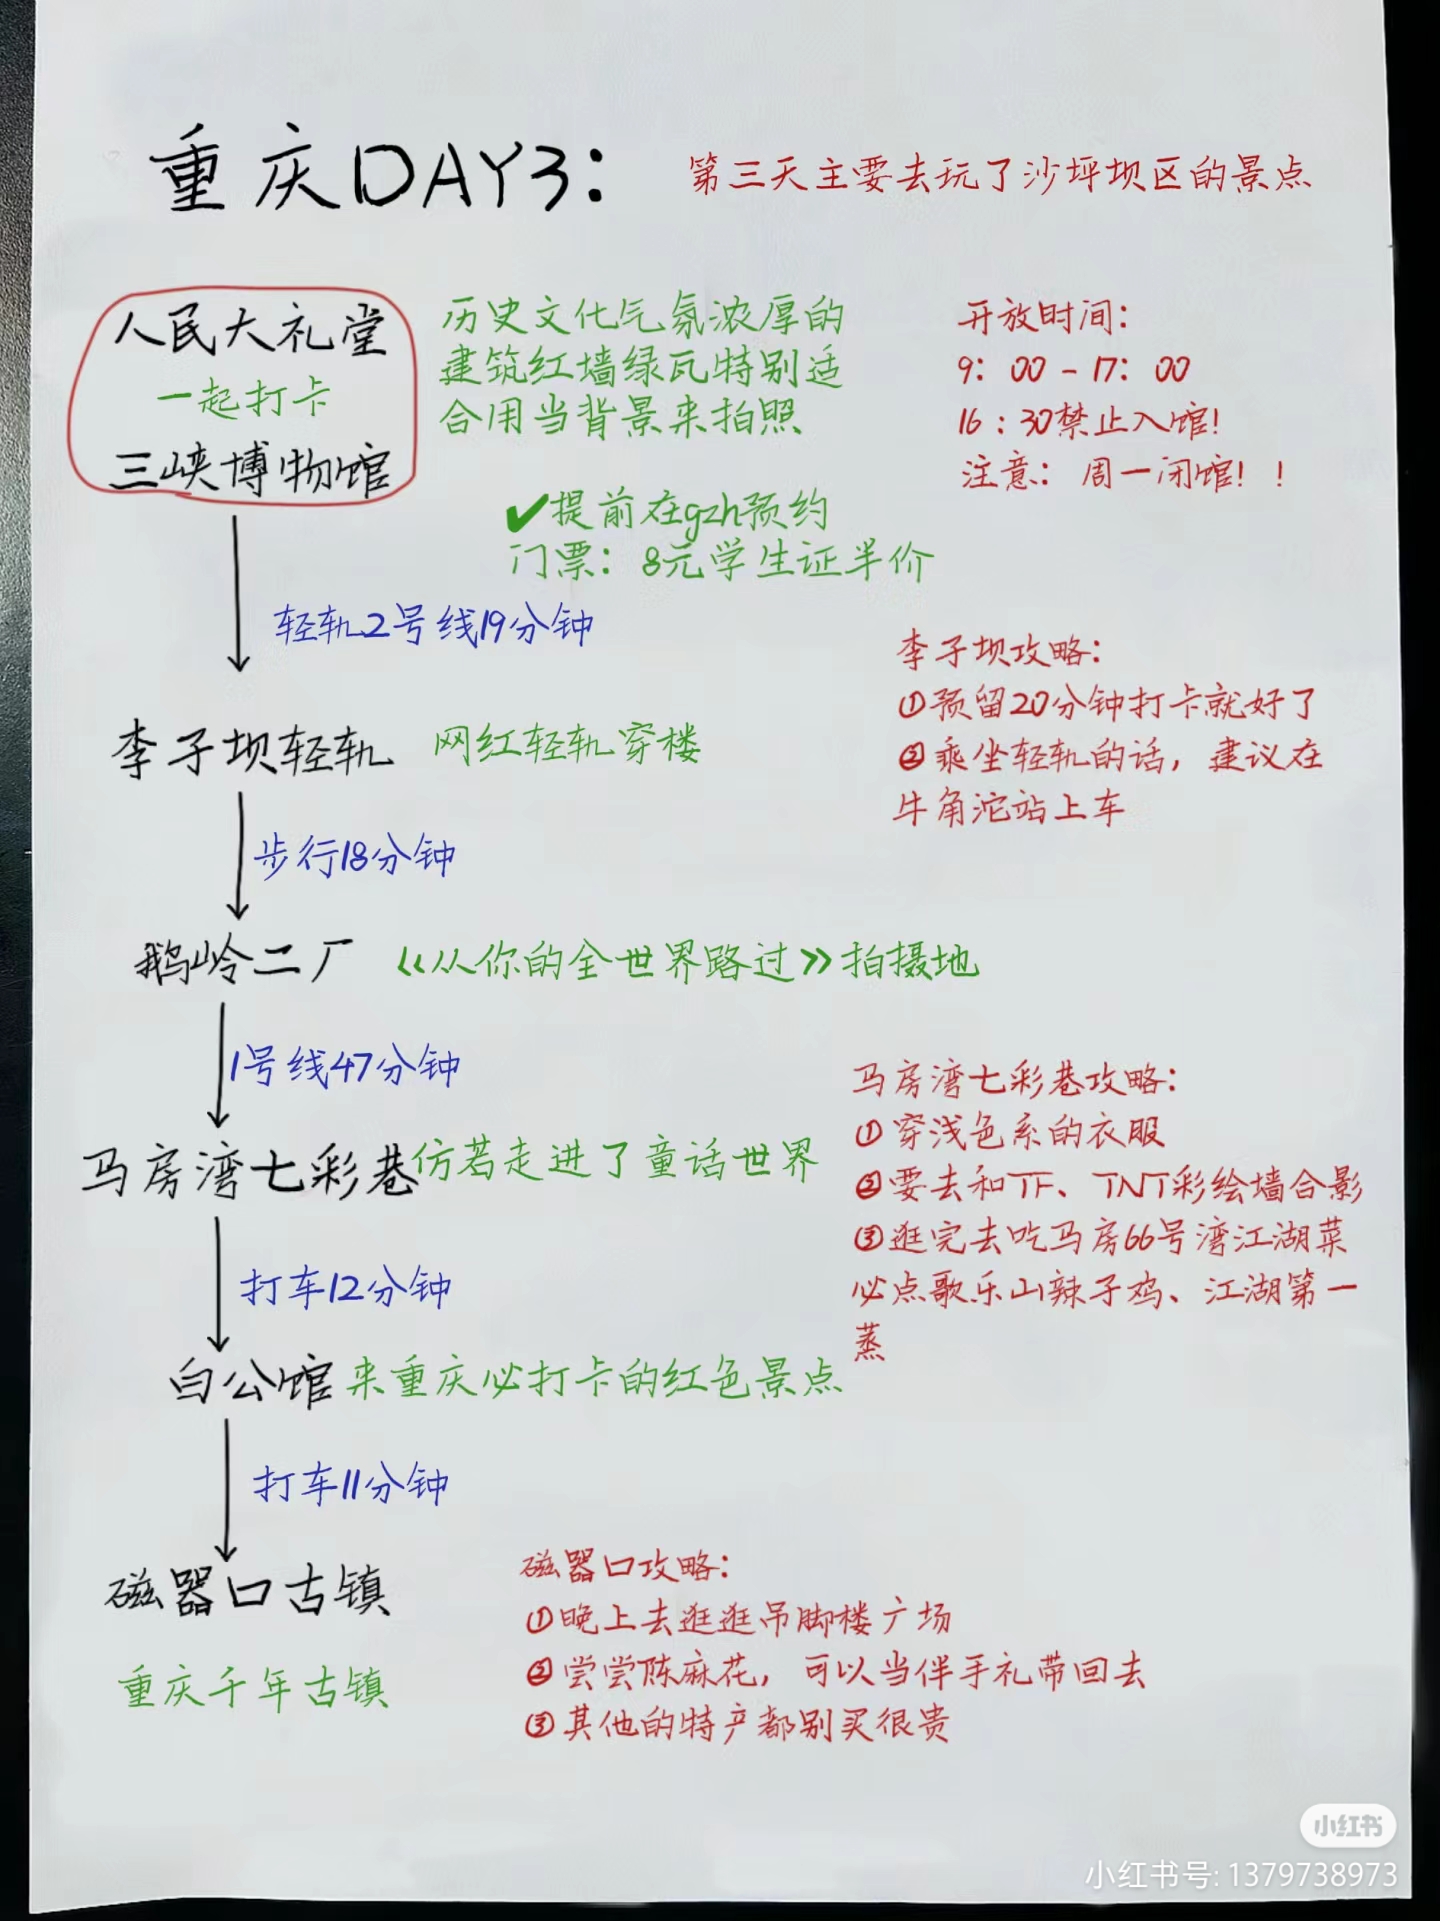 重庆DAY3：
第三天主要去玩了沙坪坝区的景点
人民大礼堂
一起打卡
三峡博物馆
历史文化气氛浓厚的
建筑红墙绿瓦特别适
合用当背景来拍照
开放时间：
9：00-17：00
16：30禁止入馆！
注意：周一闭馆！！
✔提前在gzh预约
门票：8元学生证半价
轻轨2号线19分钟
李子坝轻轨
网红轻轨穿楼
李子坝攻略：
①预留20分钟打卡就好了
②乘坐轻轨的话，建议在
牛角沱站上车
步行18分钟
鹅岭二厂
《从你的全世界路过》拍摄地
1号线47分钟
马房湾七彩巷
仿若走进了童话世界
马房湾七彩巷攻略：
①穿浅色系的衣服
②要去和TF、TNT彩绘墙合影
③逛完去吃马房66号湾江湖菜
必点歌乐山辣子鸡、江湖第一
蒸
打车12分钟
白公馆
来重庆必打卡的红色景点
打车11分钟
磁器口古镇
重庆千年古镇
磁器口攻略：
①晚上去逛逛吊脚楼广场
②尝尝陈麻花，可以当伴手礼带回去
③其他的特产都别买很贵
小红书
小红书号：1379738973